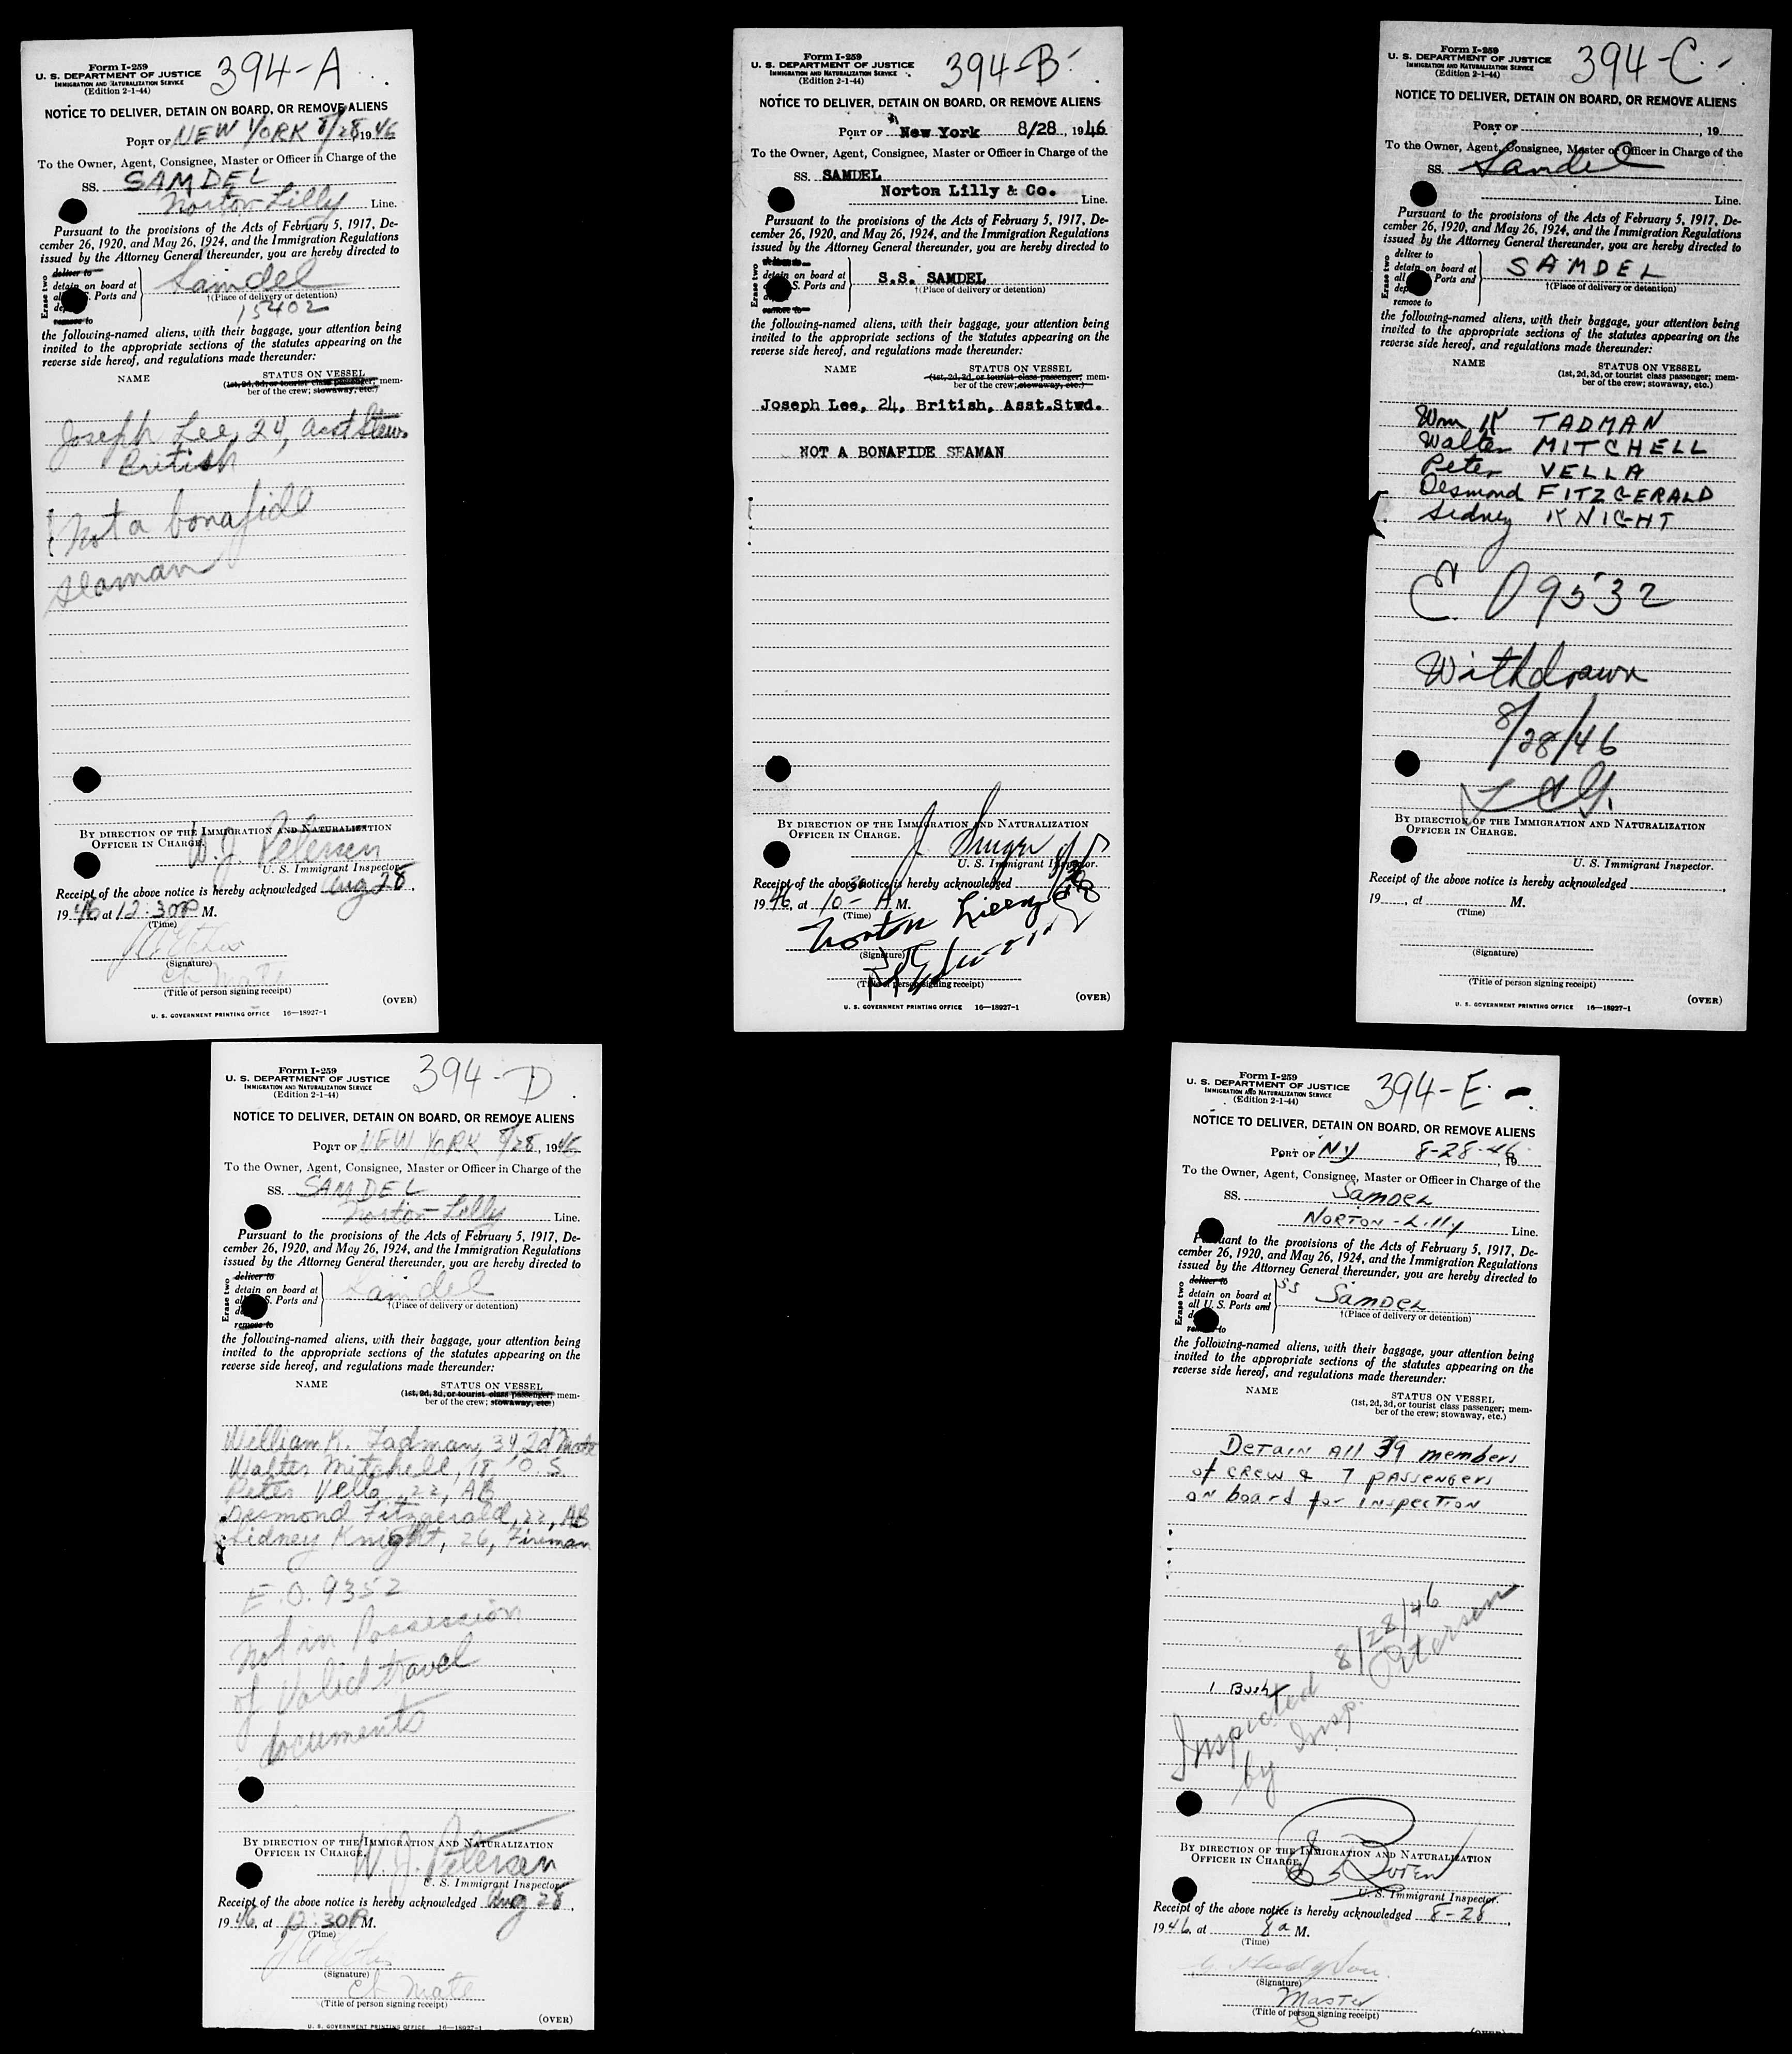 Form I-259
U. S. DEPARTMENT OF JUSTICE
IMMIGRATION AND NATURALIZATION SERVICE
(Edition 2-1-44)
394-A
NOTICE TO DELIVER, DETAIN ON BOARD, OR REMOVE ALIENS
PORT OF NEW YORK 8/28, 1946
To the Owner, Agent, Consignee, Master or Officer in Charge of the
SS. SAMDEL
Norton-Lilly Line.
Pursuant to the provisions of the Acts of February 5, 1917, De-
cember 26, 1920, and May 26, 1924, and the Immigration Regulations
issued by the Attorney General thereunder, you are hereby directed to
Erase two
deliver to
detain on board at
S. Ports and
remove to
Samdel
†(Place of delivery or detention)
15402
the following-named aliens, with their baggage, your attention being
invited to the appropriate sections of the statutes appearing on the
reverse side hereof, and regulations made thereunder:
NAME
STATUS ON VESSEL
(1st, 2d, 3d, or tourist class passenger; mem-
ber of the crew; stowaway, etc.)
Joseph Lee, 24, Asst Stew.
British
Not a bonafide
seaman
BY DIRECTION OF THE IMMIGRATION AND NATURALIZATION
OFFICER IN CHARGE.
W. J. Petersen
U. S. Immigrant Inspector.
Receipt of the above notice is hereby acknowledged Aug 28,
1946 at 12:30P M.
(Time)
(Signature)
Ch Mate
(Title of person signing receipt)
(OVER)
U. S. GOVERNMENT PRINTING OFFICE 16—18927-1
Form I-259
U. S. DEPARTMENT OF JUSTICE
IMMIGRATION AND NATURALIZATION SERVICE
(Edition 2-1-44)
394-B
NOTICE TO DELIVER, DETAIN ON BOARD, OR REMOVE ALIENS
PORT OF New York 8/28, 1946
To the Owner, Agent, Consignee, Master or Officer in Charge of the
SS. SAMDEL
Norton Lilly & Co.
Line.
Pursuant to the provisions of the Acts of February 5, 1917, De-
cember 26, 1920, and May 26, 1924, and the Immigration Regulations
issued by the Attorney General thereunder, you are hereby directed to
Erase two
detain on board at
S. Ports and
remove to
S.S. SAMDEL
†(Place of delivery or detention)
the following-named aliens, with their baggage, your attention being
invited to the appropriate sections of the statutes appearing on the
reverse side hereof, and regulations made thereunder:
NAME
STATUS ON VESSEL
(1st, 2d, 3d, or tourist class passenger; mem-
ber of the crew; stowaway, etc.)
Joseph Lee, 24, British, Asst.Stwd.
NOT A BONAFIDE SEAMAN
BY DIRECTION OF THE IMMIGRATION AND NATURALIZATION
OFFICER IN CHARGE.
J. Singer
U. S. Immigrant Inspector.
Receipt of the above notice is hereby acknowledged
1946, at 10 30 A M.
(Time)
Norton Lilly
(Signature)
(Title of person signing receipt)
(OVER)
U. S. GOVERNMENT PRINTING OFFICE 16—18927-1
Form I-259
U. S. DEPARTMENT OF JUSTICE
IMMIGRATION AND NATURALIZATION SERVICE
(Edition 2-1-44)
394-C
NOTICE TO DELIVER, DETAIN ON BOARD, OR REMOVE ALIENS
PORT OF , 19
To the Owner, Agent, Consignee, Master or Officer in Charge of the
SS. Samdel
Line.
Pursuant to the provisions of the Acts of February 5, 1917, De-
cember 26, 1920, and May 26, 1924, and the Immigration Regulations
issued by the Attorney General thereunder, you are hereby directed to
Erase two
deliver to
detain on board at
all S. Ports and
remove to
SAMDEL
†(Place of delivery or detention)
the following-named aliens, with their baggage, your attention being
invited to the appropriate sections of the statutes appearing on the
reverse side hereof, and regulations made thereunder:
NAME
STATUS ON VESSEL
(1st, 2d, 3d, or tourist class passenger; mem-
ber of the crew; stowaway, etc.)
Wm K TADMAN
Walter MITCHELL
Peter VELLA
Desmond FITZGERALD
Sidney KNIGHT
E O 9532
Withdrawn
8/28/46
BY DIRECTION OF THE IMMIGRATION AND NATURALIZATION
OFFICER IN CHARGE.
U. S. Immigrant Inspector.
Receipt of the above notice is hereby acknowledged ,
19 , at M.
(Time)
(Signature)
(Title of person signing receipt)
(OVER)
U. S. GOVERNMENT PRINTING OFFICE 16—18927-1
Form I-259
U. S. DEPARTMENT OF JUSTICE
IMMIGRATION AND NATURALIZATION SERVICE
(Edition 2-1-44)
394-D
NOTICE TO DELIVER, DETAIN ON BOARD, OR REMOVE ALIENS
PORT OF NEW YORK 8/28, 1946
To the Owner, Agent, Consignee, Master or Officer in Charge of the
SS. SAMDEL
Norton-Lilly Line.
Pursuant to the provisions of the Acts of February 5, 1917, De-
cember 26, 1920, and May 26, 1924, and the Immigration Regulations
issued by the Attorney General thereunder, you are hereby directed to
Erase two
deliver to
detain on board at
all S. Ports and
remove to
Samdel
†(Place of delivery or detention)
the following-named aliens, with their baggage, your attention being
invited to the appropriate sections of the statutes appearing on the
reverse side hereof, and regulations made thereunder:
NAME
STATUS ON VESSEL
(1st, 2d, 3d, or tourist class passenger; mem-
ber of the crew; stowaway, etc.)
William K. Tadman, 34, 2d Mate
Walter Mitchell, 18, O.S.
Peter Vella, 22, AB
Desmond Fitzgerald, 22, AB
Sidney Knight, 26, Fireman
E.O. 9352
Not in Possession
of Valid travel
documents
BY DIRECTION OF THE IMMIGRATION AND NATURALIZATION
OFFICER IN CHARGE.
W. J. Petersen
U. S. Immigrant Inspector.
Receipt of the above notice is hereby acknowledged Aug 28,
1946, at 12:30P M.
(Time)
(Signature)
Ch Mate
(Title of person signing receipt)
(OVER)
U. S. GOVERNMENT PRINTING OFFICE 16—18927-1
Form I-259
U. S. DEPARTMENT OF JUSTICE
IMMIGRATION AND NATURALIZATION SERVICE
(Edition 2-1-44)
394-E
NOTICE TO DELIVER, DETAIN ON BOARD, OR REMOVE ALIENS
PORT OF NY 8-28-46, 19
To the Owner, Agent, Consignee, Master or Officer in Charge of the
SS. Samdel
Norton-Lilly Line.
Pursuant to the provisions of the Acts of February 5, 1917, De-
cember 26, 1920, and May 26, 1924, and the Immigration Regulations
issued by the Attorney General thereunder, you are hereby directed to
Erase two
deliver to
detain on board at
all U. S. Ports and
remove to
SS Samdel
†(Place of delivery or detention)
the following-named aliens, with their baggage, your attention being
invited to the appropriate sections of the statutes appearing on the
reverse side hereof, and regulations made thereunder:
NAME
STATUS ON VESSEL
(1st, 2d, 3d, or tourist class passenger; mem-
ber of the crew; stowaway, etc.)
Detain All 39 members
of crew & 7 passengers
on board for inspection
1 Bush
Inspected 8/28/46
by Insp. Petersen
BY DIRECTION OF THE IMMIGRATION AND NATURALIZATION
OFFICER IN CHARGE.
U. S. Immigrant Inspector.
Receipt of the above notice is hereby acknowledged 8-28,
1946, at 8a M.
(Time)
(Signature)
Master
(Title of person signing receipt)
(OVER)